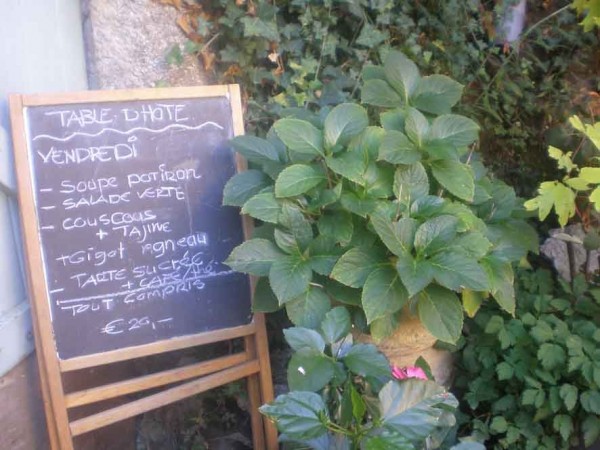 TABLE D'HOTE
VENDREDI
- SOUPE POTIRON
- SALADE VERTE
- COUSCOUS
+ TAJINE
+ Gigot agneau
- TARTE SUCRÉE
+ CAFE/
TOUT COMPRIS
€ 20,-